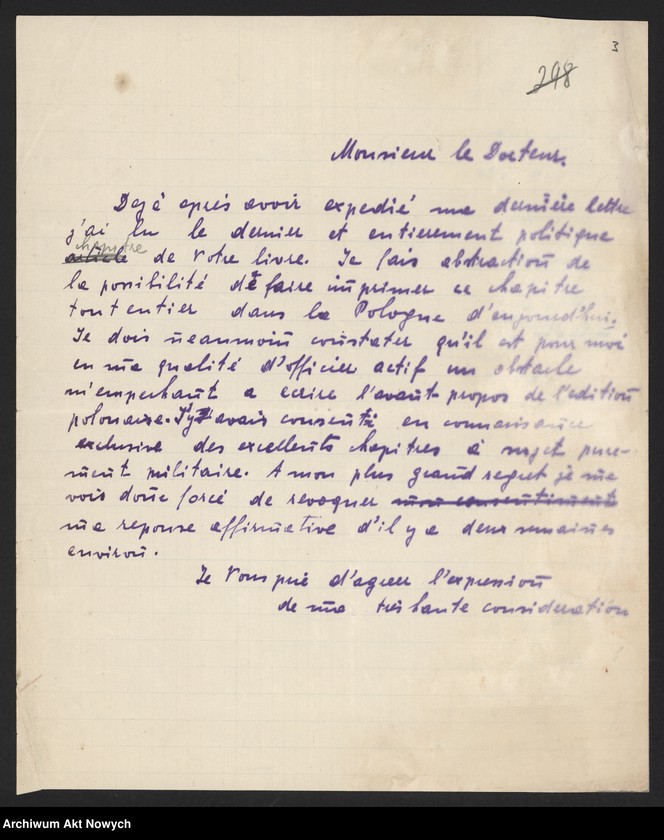 3
298
Monsieur le Docteur.
Dejà après avoir expedié ma dernière lettre
j'ai lu le dernier et entierement politique
chapitre
article de Votre livre. Je fais abstraction de
la possibilité de faire imprimer ce chapitre
tout entier dans la Pologne d'aujourd'hui.
Je dois neanmoin constater qu'il est pour moi
en ma qualité d'officier actif un obstacle
m'empechant a ecrire l'avant-propos de l'edition
polonaise. J'y avais consenti en connaissance
exclusive des excellents chapitres à sujet pure-
ment militaire. A mon plus grand regret je me
vois donc forcé de revoquer mon consentiment
ma reponse affirmative d'il y a deux semaines
environ.
Je Vous prie d'agreer l'expression
de ma très haute consideration
Archiwum Akt Nowych